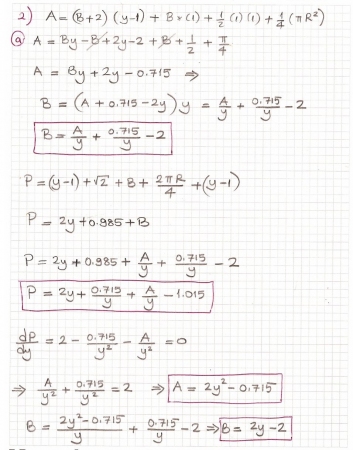 2) A = (B+2)(y-1) + B×(1) + 1/2 (1)(1) + 1/4 (πR²)
(a) A = By - B + 2y - 2 + B + 1/2 + π/4
A = By + 2y - 0.715 ⇒
B = (A + 0.715 - 2y) y = A/y + 0.715/y - 2
B = A/y + 0.715/y - 2
P = (y-1) + √2 + B + 2πR/4 + (y-1)
P = 2y + 0.985 + B
P = 2y + 0.985 + A/y + 0.715/y - 2
P = 2y + 0.715/y + A/y - 1.015
dP/dy = 2 - 0.715/y² - A/y² = 0
⇒ A/y² + 0.715/y² = 2 ⇒ A = 2y² - 0.715
B = 2y² - 0.715/y + 0.715/y - 2 ⇒ B = 2y - 2